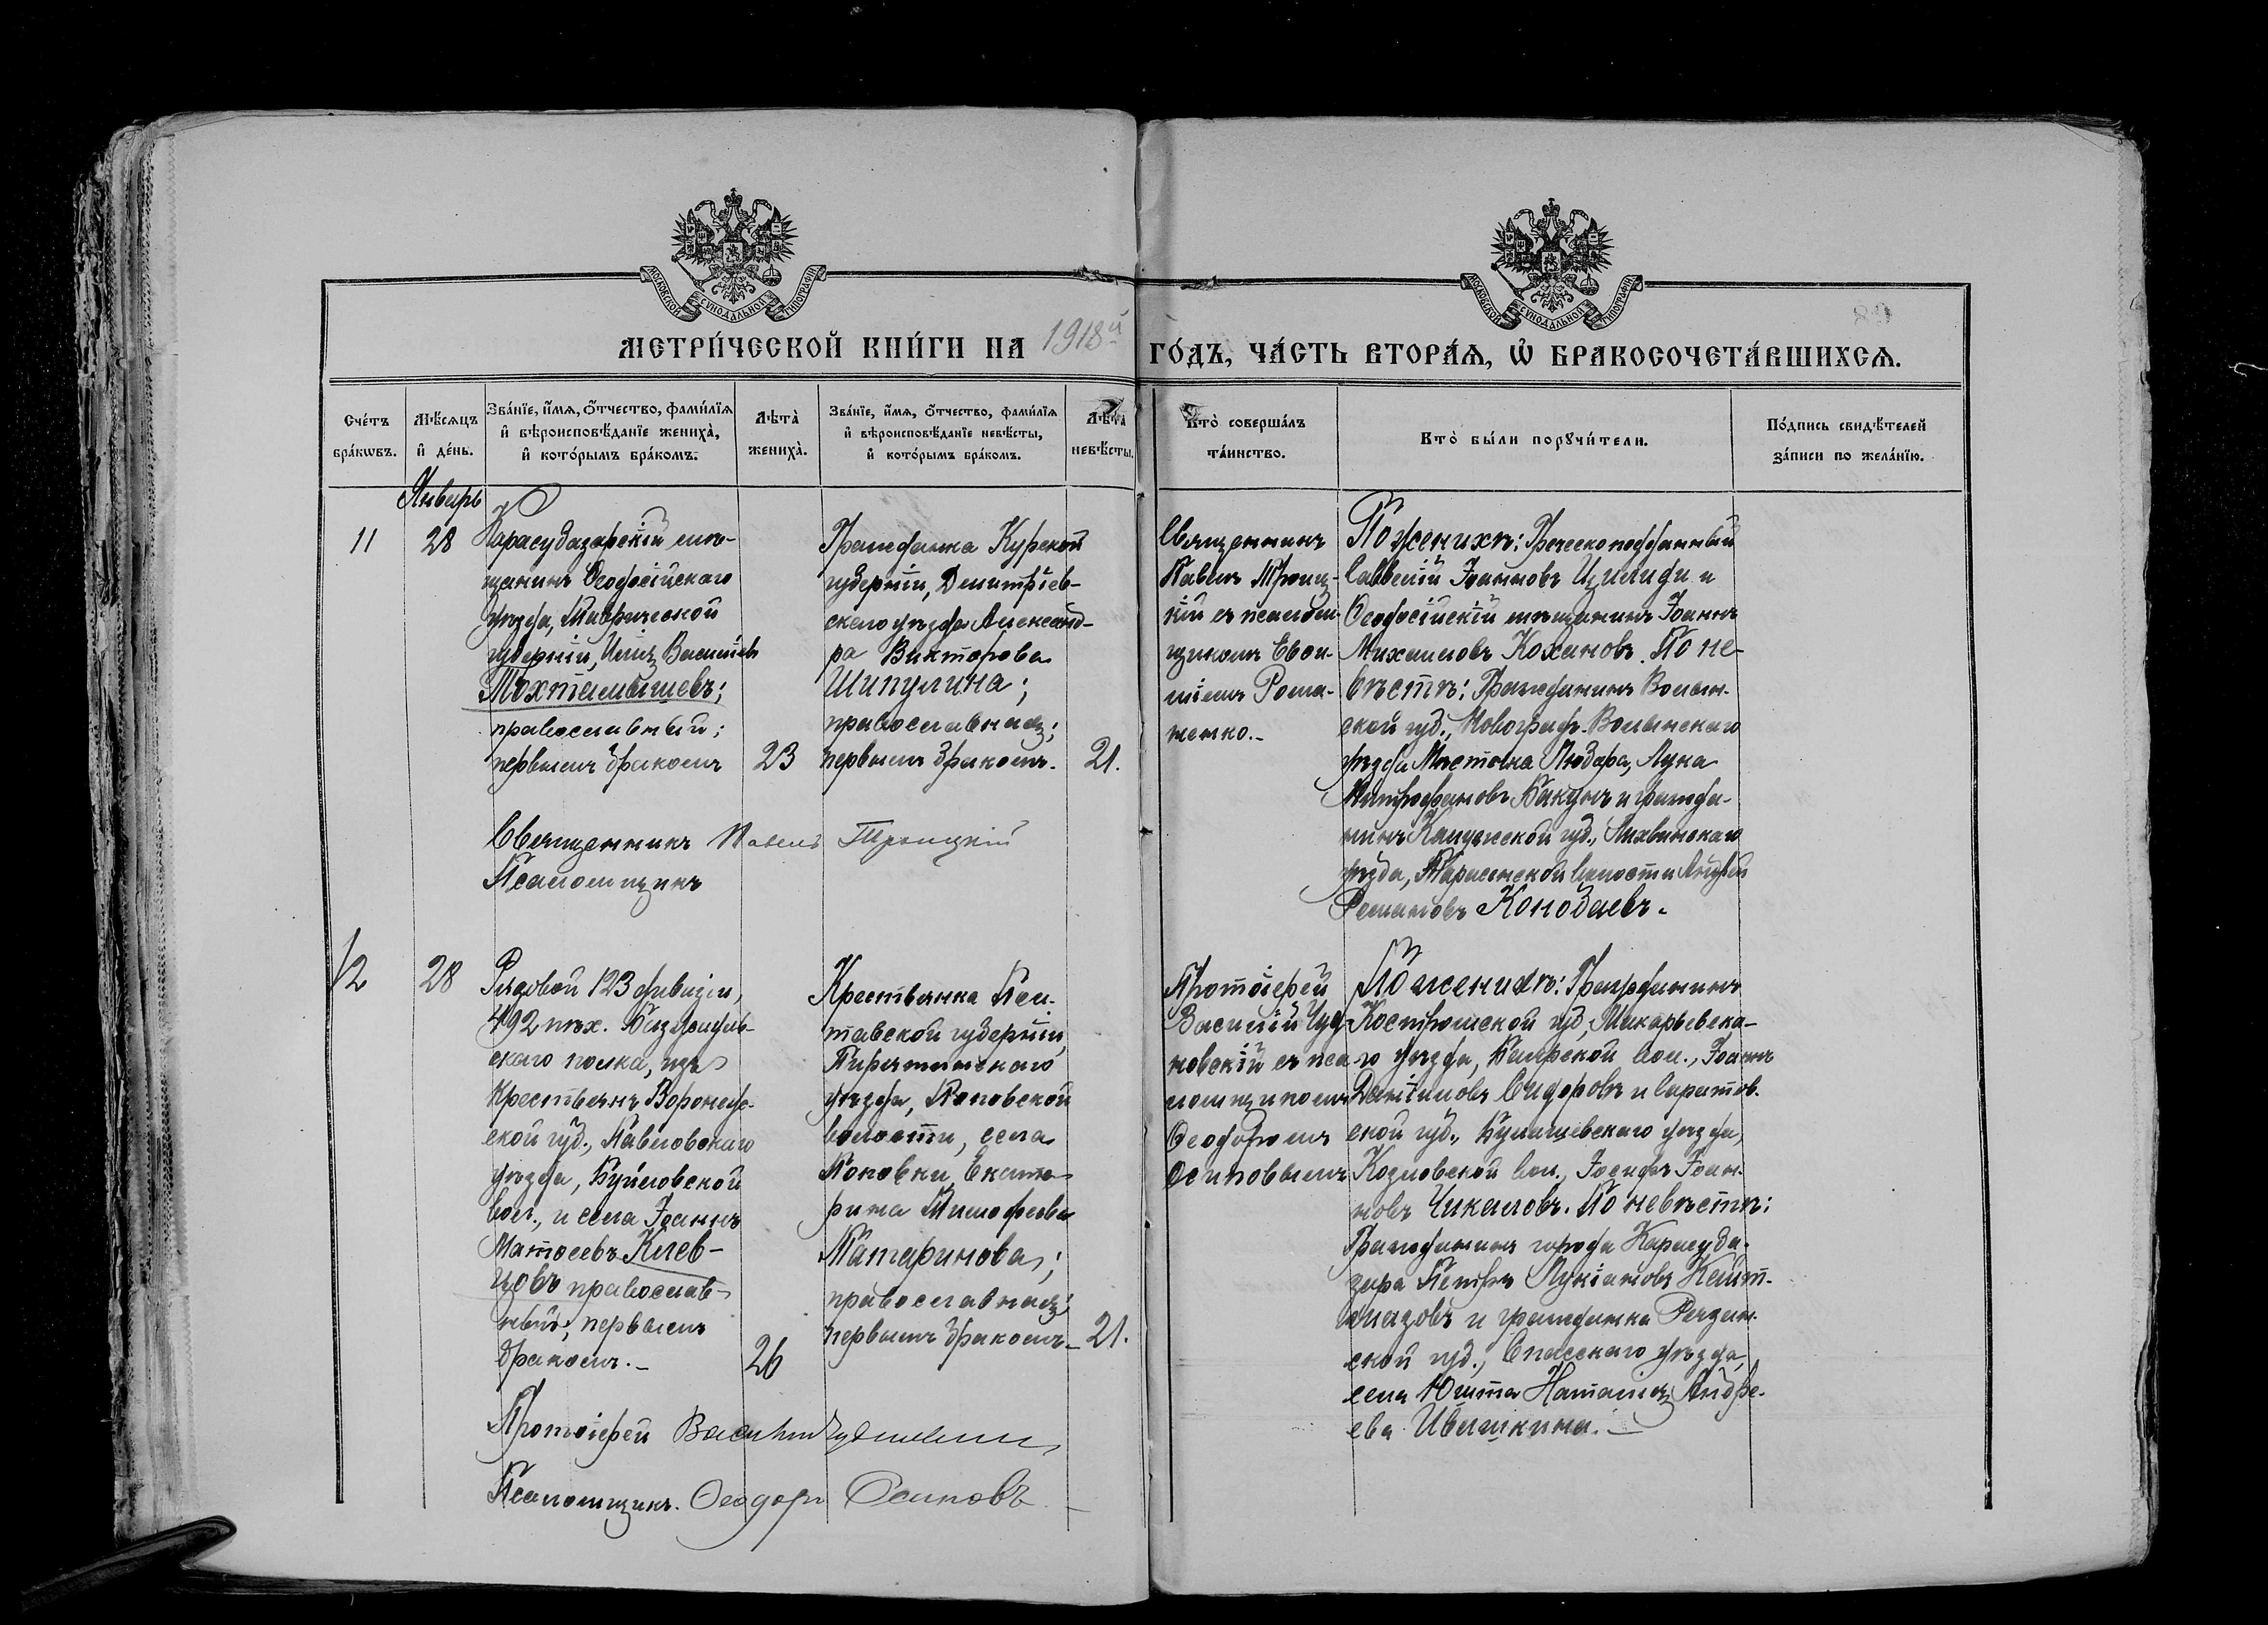 МОСКОВСКОЙ СУНОДАЛЬНОЙ ТИПОГРАФІИ
МОСКОВСКОЙ СУНОДАЛЬНОЙ ТИПОГРАФІИ
МЕТРИ́ЧЕСКОЙ КНИ́ГИ НА 1918й ГО́ДЪ, ЧА́СТЬ ВТОРА́Ѧ, Ѡ҆ БРАКОСОЧЕТА́ВШИХСѦ.
Сче́тъ бра́кѡвъ.
Мѣ́сѧцъ и҆ де́нь.
Зва́нїе, и҆́мѧ, о҆́тчество, фами́лїѧ
и҆ вѣроисповѣ́данїе жениха̀,
и҆ кото́рымъ бра́комъ.
Лѣта̀ жениха̀.
Зва́нїе, и҆́мѧ, о҆́тчество, фами́лїѧ
и҆ вѣроисповѣ́данїе невѣ́сты,
и҆ кото́рымъ бра́комъ.
Лѣта̀ невѣ́сты.
Кто̀ соверша́лъ та́инство.
Кто̀ бы́ли порꙋчи́тели.
По́дпись свидѣ́телей за́писи по жела́нїю.
Январь
11
28
Карасубазарскій мѣ-
щанинъ Ѳеодосійскаго
уѣзда, Таврической
губерніи, Илія Васильевъ
Тохтамышевъ;
православный;
первымъ бракомъ
23
Гражданка Курской
губерніи, Димитріев-
скаго уѣзда Александ-
ра Викторова
Шипулина;
православная;
первымъ бракомъ.
21.
Священникъ
Павелъ Троиц-
кій съ псалом-
щикомъ Евѳи-
міемъ Рома-
ненко.-
По женихѣ: Греческоподданный
Савелій Іоанновъ Цилиди и
Ѳеодосійскій мѣщанинъ Іоаннъ
Михаиловъ Кохановъ. По не-
вѣстѣ: Гражданинъ Волын-
ской губ., Новоград-Волынскаго
уѣзда Мѣстечка Любара, Лука
Митрофановъ Бакунъ и гражда-
нинъ Калужской губ., Лихвинскаго
уѣзда, волости Андрей
Коновдаевъ.
Священникъ Павелъ Троицкій
Псаломщикъ
12
28
Рядовой 123 дивизіи,
492 пѣх. Барнауль-
скаго полка, изъ
Крестьянъ Воронеж-
ской губ., Павловскаго
уѣзда, Буйловской
вол., и села Іоаннъ
Матѳеевъ Клев-
цовъ православ-
ный; первымъ
бракомъ.-
26
Крестьянка Пол-
тавской губерніи,
Пирятинскаго
уѣзда, Поповской
волости, села
Поповки, Екате-
рина Тимофеева
Татаринова;
православная;
первымъ бракомъ-
21.
Протоіерей
Василій Чуд-
новскій съ пса-
ломщикомъ
Ѳеодоромъ
Осиповымъ
По женихѣ: Гражданинъ
Костромской губ, Макарьевска-
го уѣзда, вол., Іоаннъ
Сидоровъ и Саратов-
ской губ., уѣзда,
Козловской вол., Іосифъ Іоан-
новъ Чикаловъ. По невѣстѣ:
Гражданинъ города Карасуба-
зара Петръ Лукіановъ
и гражданка Рязан-
ской губ., Спасскаго уѣзда,
села Ижта Наталія Андре-
ева Ивашкина.-
Протоіерей Василій Чудновскій
Псаломщикъ. Ѳеодоръ Осиповъ